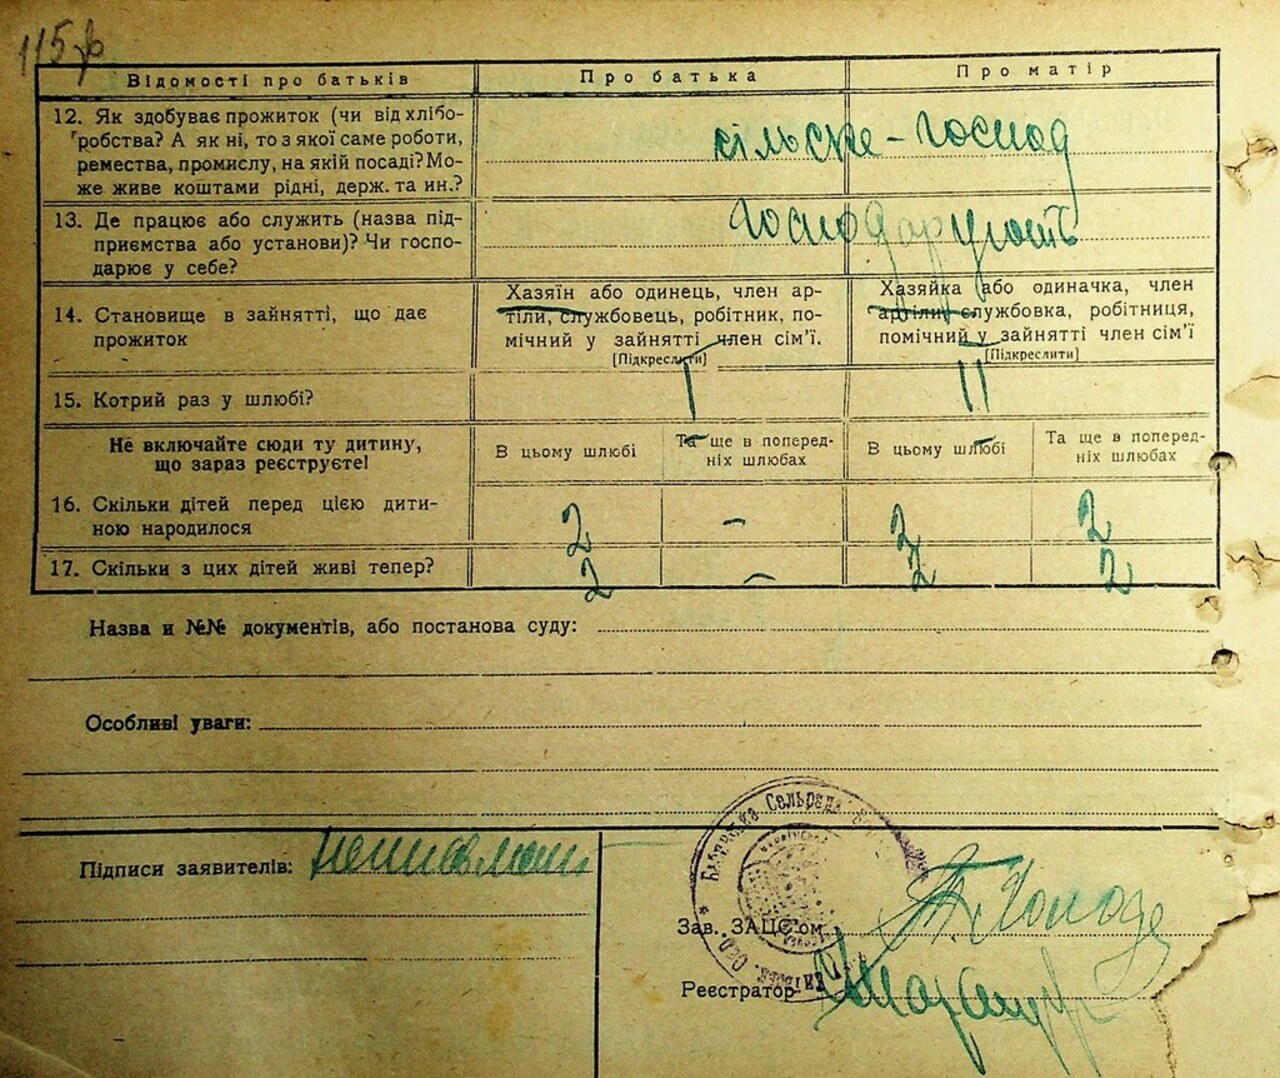 115
Відомості про батьків Про батька Про матір
12. Як здобуває прожиток (чи від хлібо-
робства? А як ні, то з якої саме роботи,
ремества, промислу, на якій посаді? Мо-
же живе коштами рідні, держ. та ин.?
сільське-господ
13. Де працює або служить (назва під-
приємства або установи)? Чи госпо-
дарює у себе?
господарують
14. Становище в зайнятті, що дає
прожиток
Хазяїн або одинець, член ар-
тіли, службовець, робітник, по-
мічний у зайнятті член сім'ї.
[Підкреслити]
Хазяйка або одиначка, член
артіли, службовка, робітниця,
помічний у зайнятті член сім'ї
[Підкреслити]
15. Котрий раз у шлюбі? I II
Не включайте сюди ту дитину,
що зараз реєструєте!
В цьому шлюбі
Та ще в поперед-
ніх шлюбах
В цьому шлюбі
Та ще в поперед-
ніх шлюбах
16. Скільки дітей перед цією дити-
ною народилося
2 - 2 2
17. Скільки з цих дітей живі тепер? 2 - 2 2
Назва и №№ документів, або постанова суду:
Особливі уваги:
Підписи заявителів:
Сельрада
Зав. ЗАЦС'ом
Реєстратор